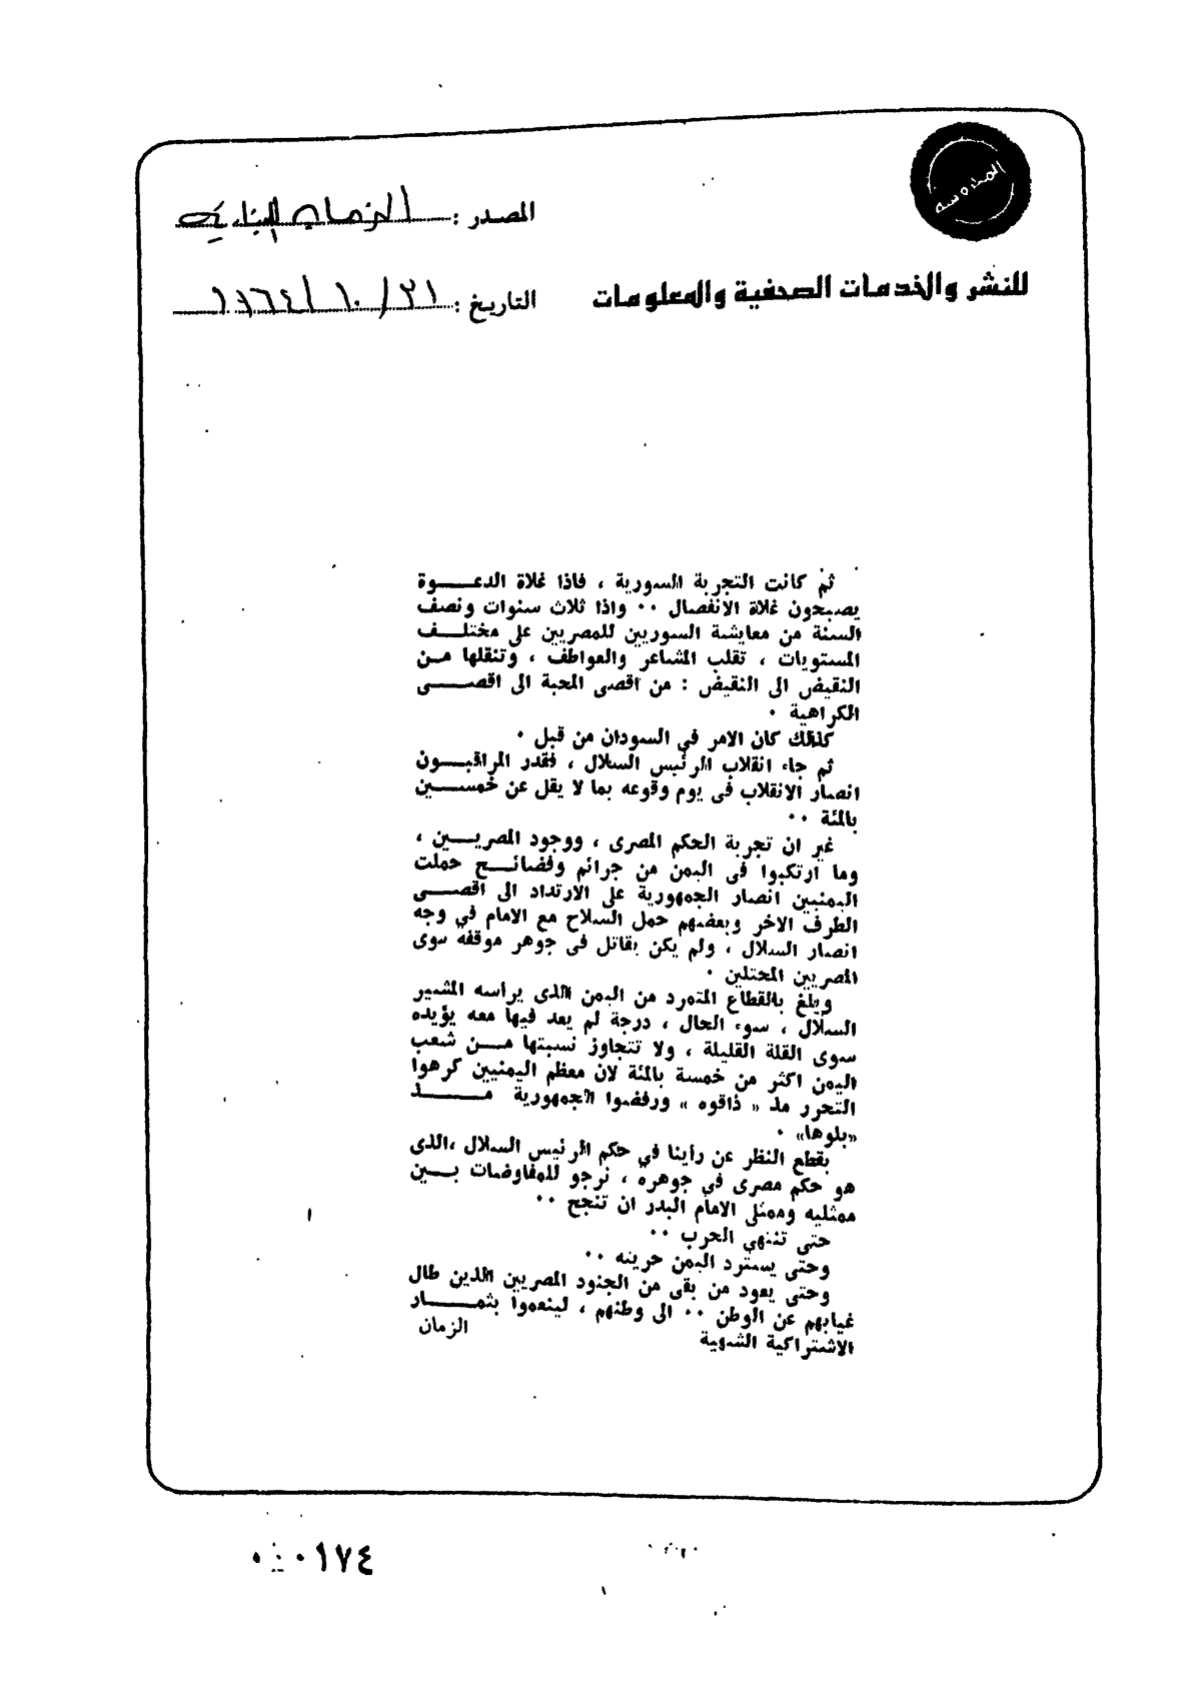 المحروسة
المصدر : الزمان اللبنانية
للنشر والخدمات الصحفية والمعلومات
التاريخ : ٣١/١٠/١٩٦٤
ثم كانت التجربة السورية ، فاذا غلاة الدعـــوة
يصبحون غلاة الانفصال ٠٠ واذا ثلاث سنوات ونصف
السنة من معايشة السوريين للمصريين على مختلـــف
المستويات ، تقلب المشاعر والعواطف ، وتنقلها مـــن
النقيض الى النقيض : من اقصى المحبة الى اقصـــى
الكراهية ٠
كذلك كان الامر في السودان من قبل ٠
ثم جاء انقلاب الرئيس السلال ، فقدر المراقبـــون
انصار الانقلاب فى يوم وقوعه بما لا يقل عن خمســـين
بالمئة ٠٠
غير ان تجربة الحكم المصرى ، ووجود المصريـــين ،
وما ارتكبوا فى اليمن من جرائم وفضائـــح حملت
اليمنيين انصار الجمهورية على الارتداد الى اقصـــى
الطرف الاخر وبعضهم حمل السلاح مع الامام في وجه
انصار السلال ، ولم يكن يقاتل فى جوهر موقفه سوى
المصريين المحتلين ٠
وبلغ بالقطاع المتمرد من اليمن الذى يراسه المشير
السلال ، سوء الحال ، درجة لم يعد فيها معه يؤيده
سوى القلة القليلة ، ولا تتجاوز نسبتها مـــن شعب
اليمن اكثر من خمسة بالمئة لان معظم اليمنيين كرهوا
التحرر مذ « ذاقوه » ورفضوا الجمهورية مـــذ
«بلوها» ٠
بقطع النظر عن راينا في حكم الرئيس السلال ،الذى
هو حكم مصرى في جوهره ، نرجو للمفاوضات بـــين
ممثليه وممثلى الامام البدر ان تنجح ٠٠
حتى تنتهي الحرب ٠٠
وحتى يسترد اليمن حريته ٠٠
وحتى يعود من بقى من الجنود المصريين الذين طال
غيابهم عن الوطن ٠٠ الى وطنهم ، لينعموا بثمـــار
الاشتراكية الشهية
الزمان
٠٠٠١٧٤